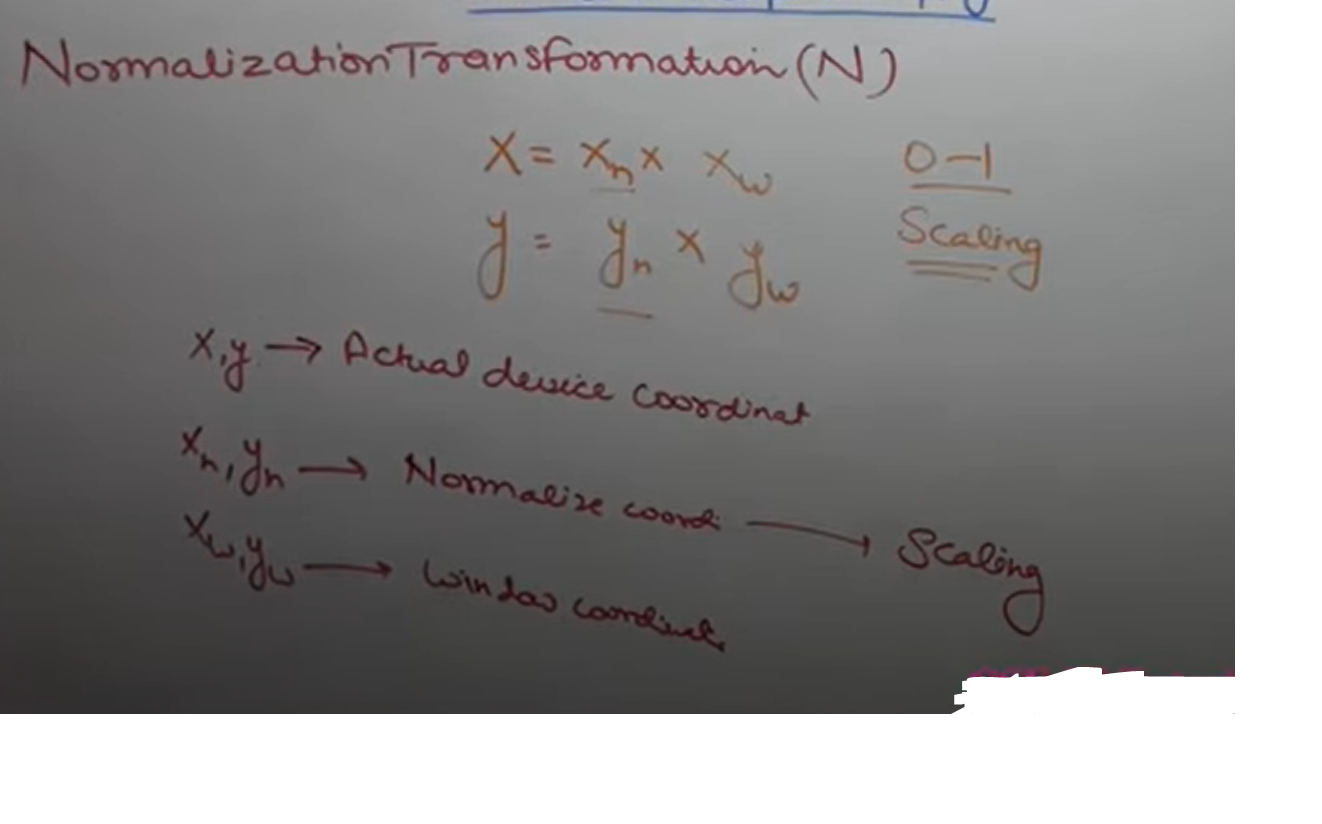 Normalization Transformation (N)
X = xn x xw 0-1
y = yn x yw Scaling
x,y → Actual device coordinat
xn,yn → Normalize coordi → Scaling
xw,yw → Window coordinat